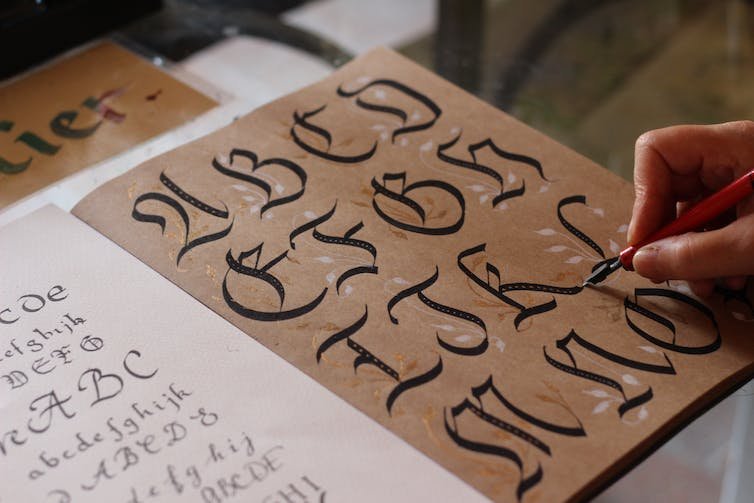 lier
A B C D
E F G H
I J K L
M N O
cDe
efghijk
DEFG
ABC
abcdefghijk
ABCD
efg hij
ABCDE